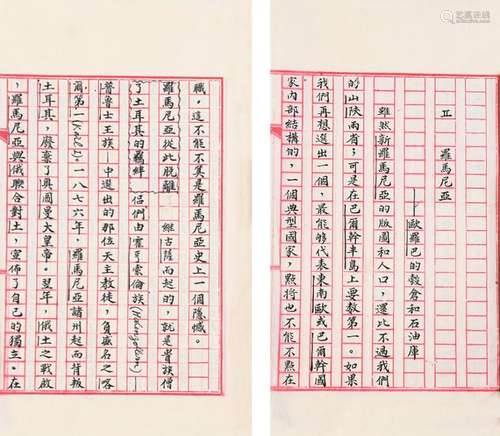 五　羅馬尼亞
——歐羅巴的穀倉和石油庫
雖然新羅馬尼亞的版圖和人口，還比不過我們
的山陝兩省；可是在巴爾幹半島上要數第一。如果
我們再想選出一個，最能够代表東南歐或巴爾幹國
家內部結構的，一個典型國家，點將也不能不點在
職。這不能不算是羅馬尼亞史上一個隱憾。
羅馬尼亞從此脫離　繼古薩而起的，就是貴族僧
了土耳其的羈絆　侶們由霍亨索倫族——
普魯士王族——中選出的那位天主教徒，負盛名之喀
爾第一(Karl)。一八七六年，羅馬尼亞諸州起而背叛
土耳其，廢棄了奧圖曼大皇帝。翌年，俄土之戰啟
，羅馬尼亞與俄聯合對土，宣佈了自己的獨立。在